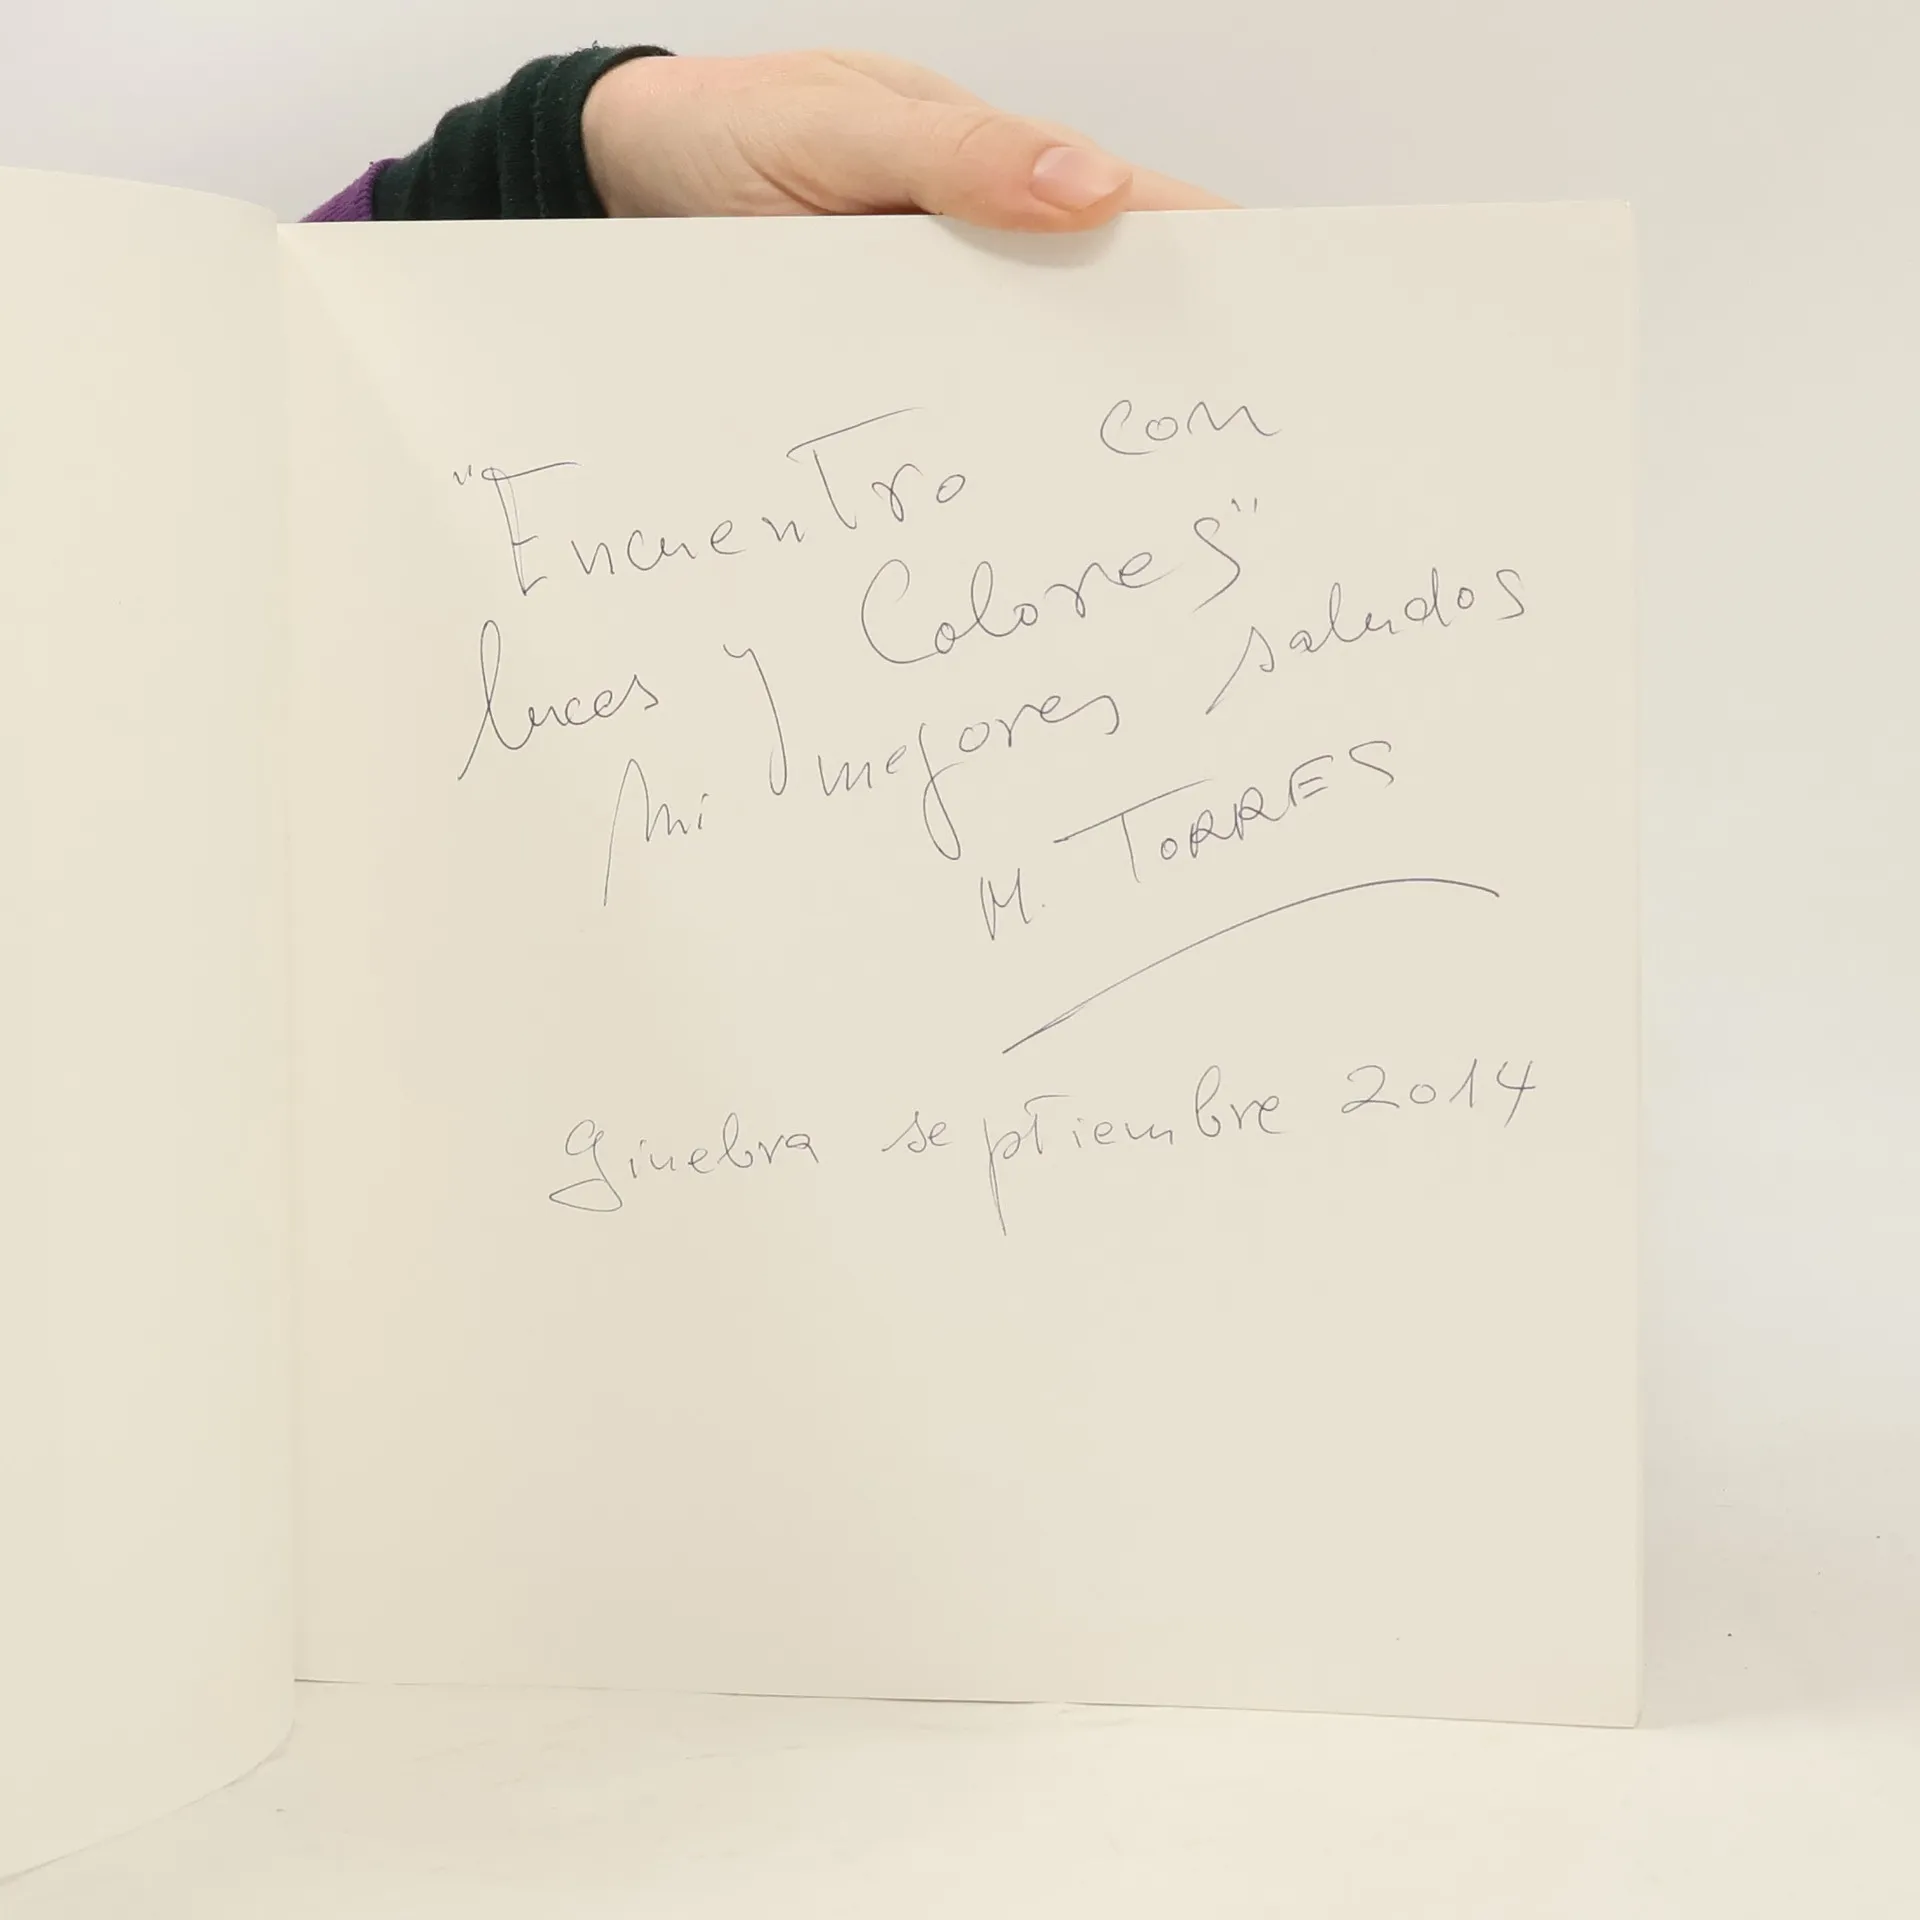 "Encuentro con
luces y Colores"
Mi mejores saludos
M. TORRES
Ginebra septiembre 2014